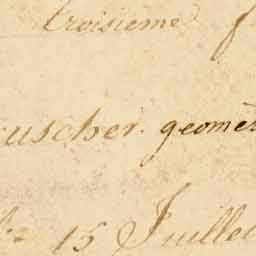 troisieme f
uscher. geomet
15 Juillet